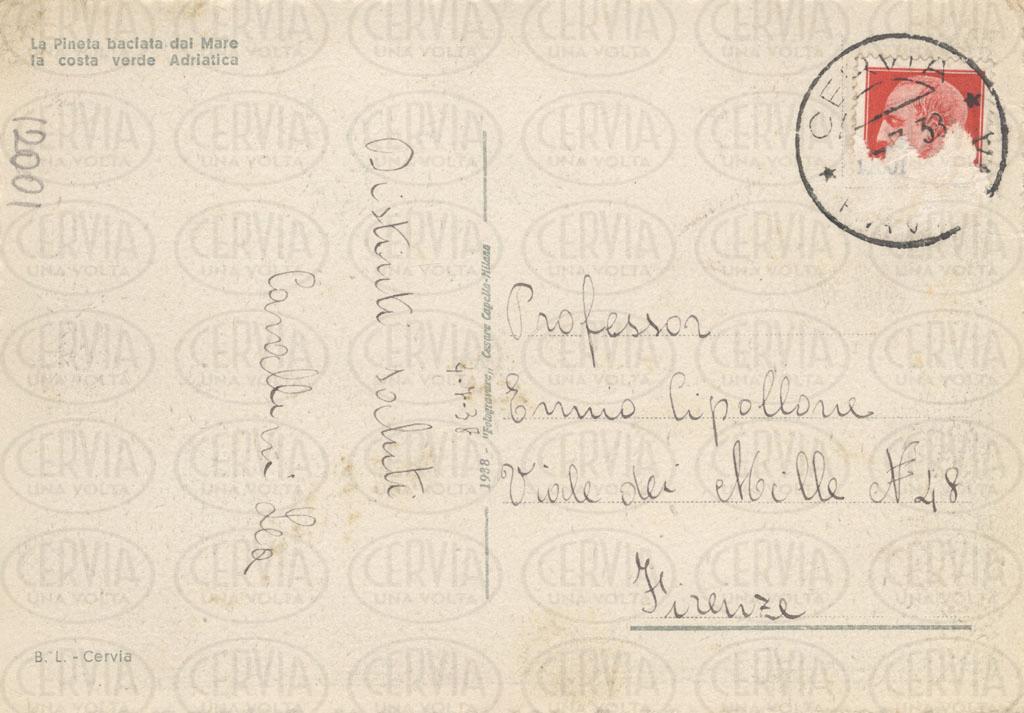 La Pineta baciata dal Mare
la costa verde Adriatica
12001
CERVIA
33
12001
Distinti saluti
Cavallini Lea
4-4-38
1938 - "Fotogravure,, Cesare Capello-Milano
Professor
Ennio Cipollone
Viale dei Mille N 48
Firenze
B. L. - Cervia
CERVIA
UNA VOLTA